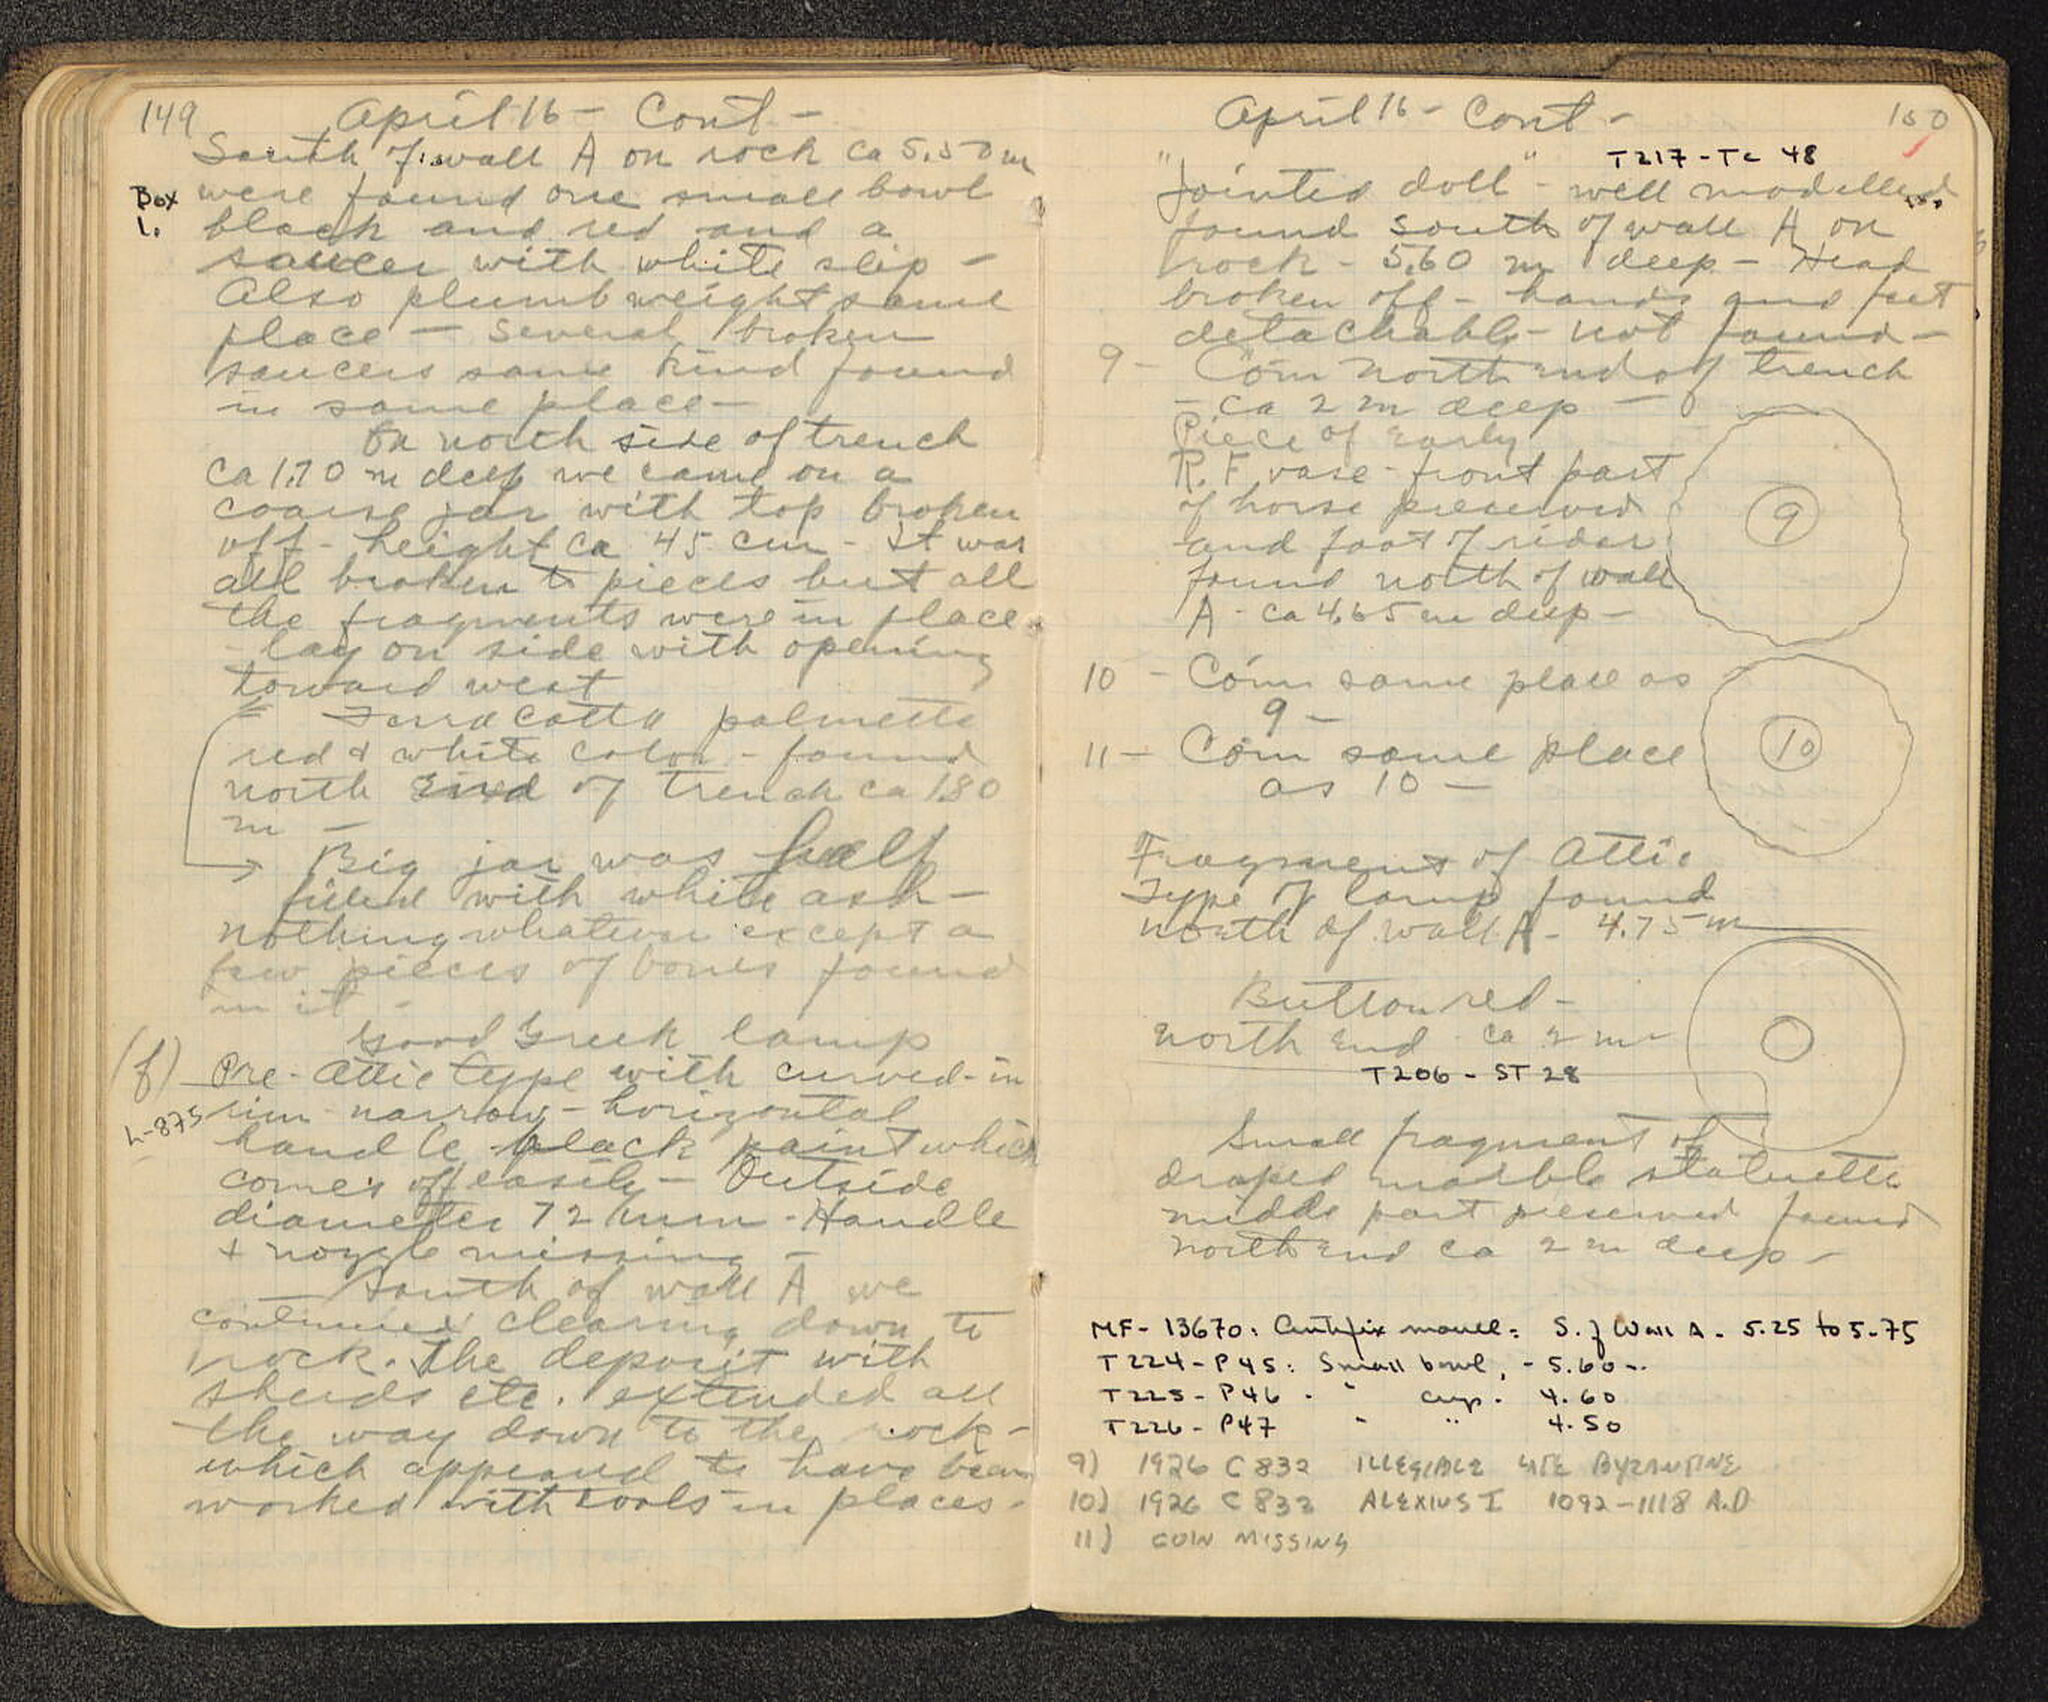 149 April 16 - Cont -
South of wall A on rock ca 5.50 m
Box were found one small bowl
1. black and red and a
saucer with white slip -
Also plumb weight same
place - several broken
saucers same kind found
in same place -
On north side of trench
ca 1.70 m deep we came on a
coarse jar with top broken
off - height ca 45 cm - It was
all broken to pieces but all
the fragments were in place
- lay on side with opening
toward west
Terracotta palmette
red & white color - found
north end of trench ca 1.80
m -
Big jar was half
filled with white ash -
nothing whatever except a
few pieces of bones found
in it -
Good Greek lamp
(f) Pre-Attic type with curved-in
L-875 rim - narrow - horizontal
handle black paint which
comes off easily - Outside
diameter 72 mm - Handle
+ nozzle missing -
South of wall A we
continued clearing down to
rock. The deposit with
sherds etc. extended all
the way down to the rock -
which appeared to have been
worked with tools in places -
April 16 - Cont - 150
T217 - TC 48
"Jointed doll" - well modelled
found south of wall A on
rock - 5.60 m deep - Head
broken off - hands and feet
detachable - not found -
9 - Coin north end of trench
- ca 2 m deep -
Piece of early
R.F. vase - front part
of horse preserved
and foot of rider
found north of wall
A - ca 4.65 m deep -
9
10 - Coin same place as
9 -
11 - Coin same place
as 10 -
10
Fragment of Attic
Type of lamp found
north of wall A - 4.75 m
Button red -
north end ca 2 m
T206 - ST 28
Small fragment of
draped marble statuette
middle part preserved found
north end ca 2 m deep -
MF - 13670: Antefix mould: S. of Wall A - 5.25 to 5.75
T224 - P45: Small bowl, - 5.60 -
T225 - P46 - " cup - 4.60
T226 - P47 " " 4.50
9) 1926 C 832 ILLEGIBLE LATE BYZANTINE
10) 1926 C 833 ALEXIUS I 1092-1118 A.D
11) COIN MISSING